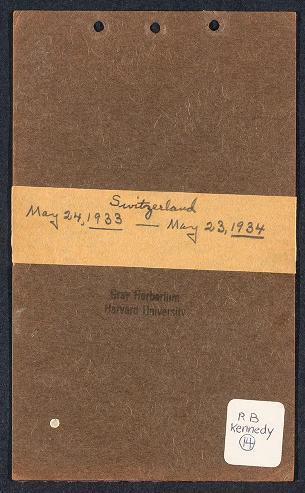 Switzerland
May 24, 1933 — May 23, 1934
Gray Herbarium
Harvard University
P.B
Kennedy
14